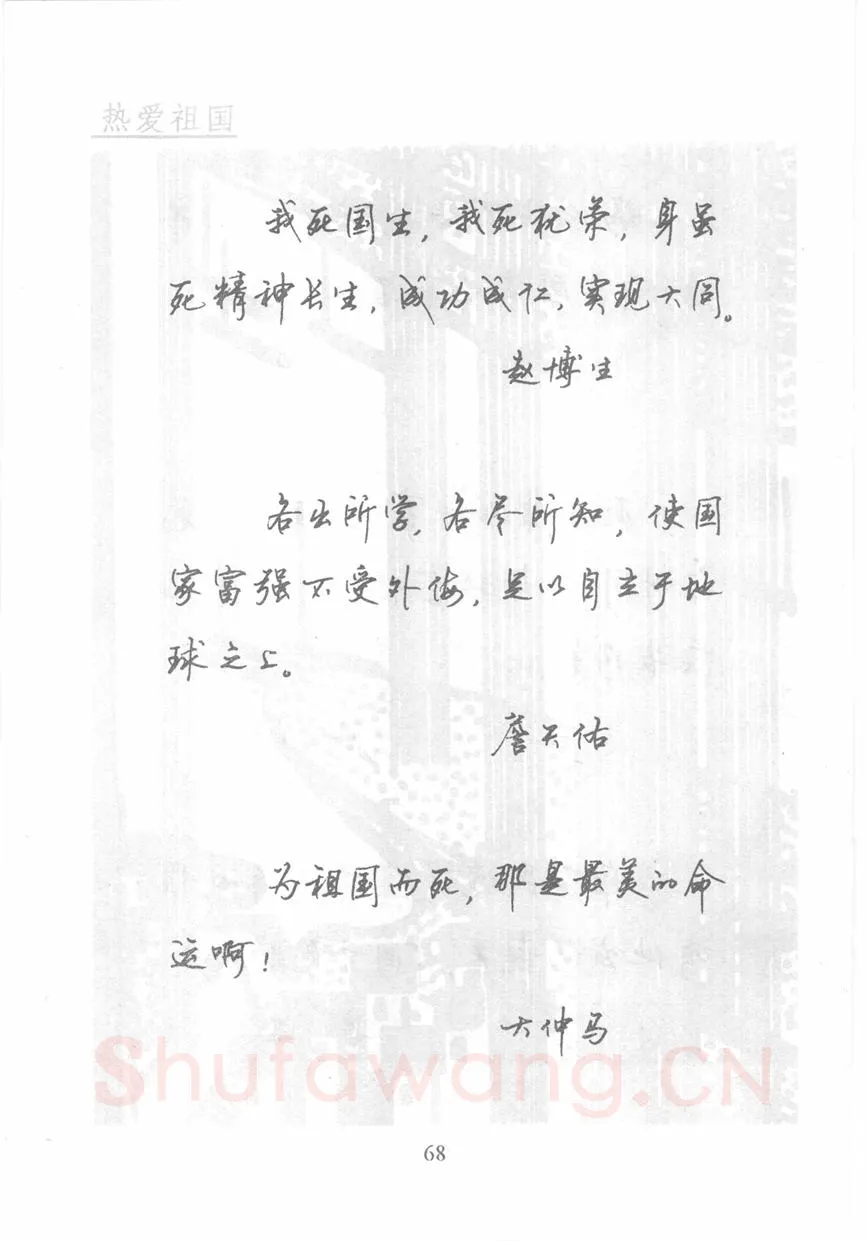 热爱祖国
我死国生，我死犹荣，身虽
死精神长生，成功成仁，实现大同。
赵博生
各出所学，各尽所知，使国
家富强不受外侮，足以自立于地
球之上。
詹天佑
为祖国而死，那是最美的命
运啊！
大仲马
Shufawang.CN
68